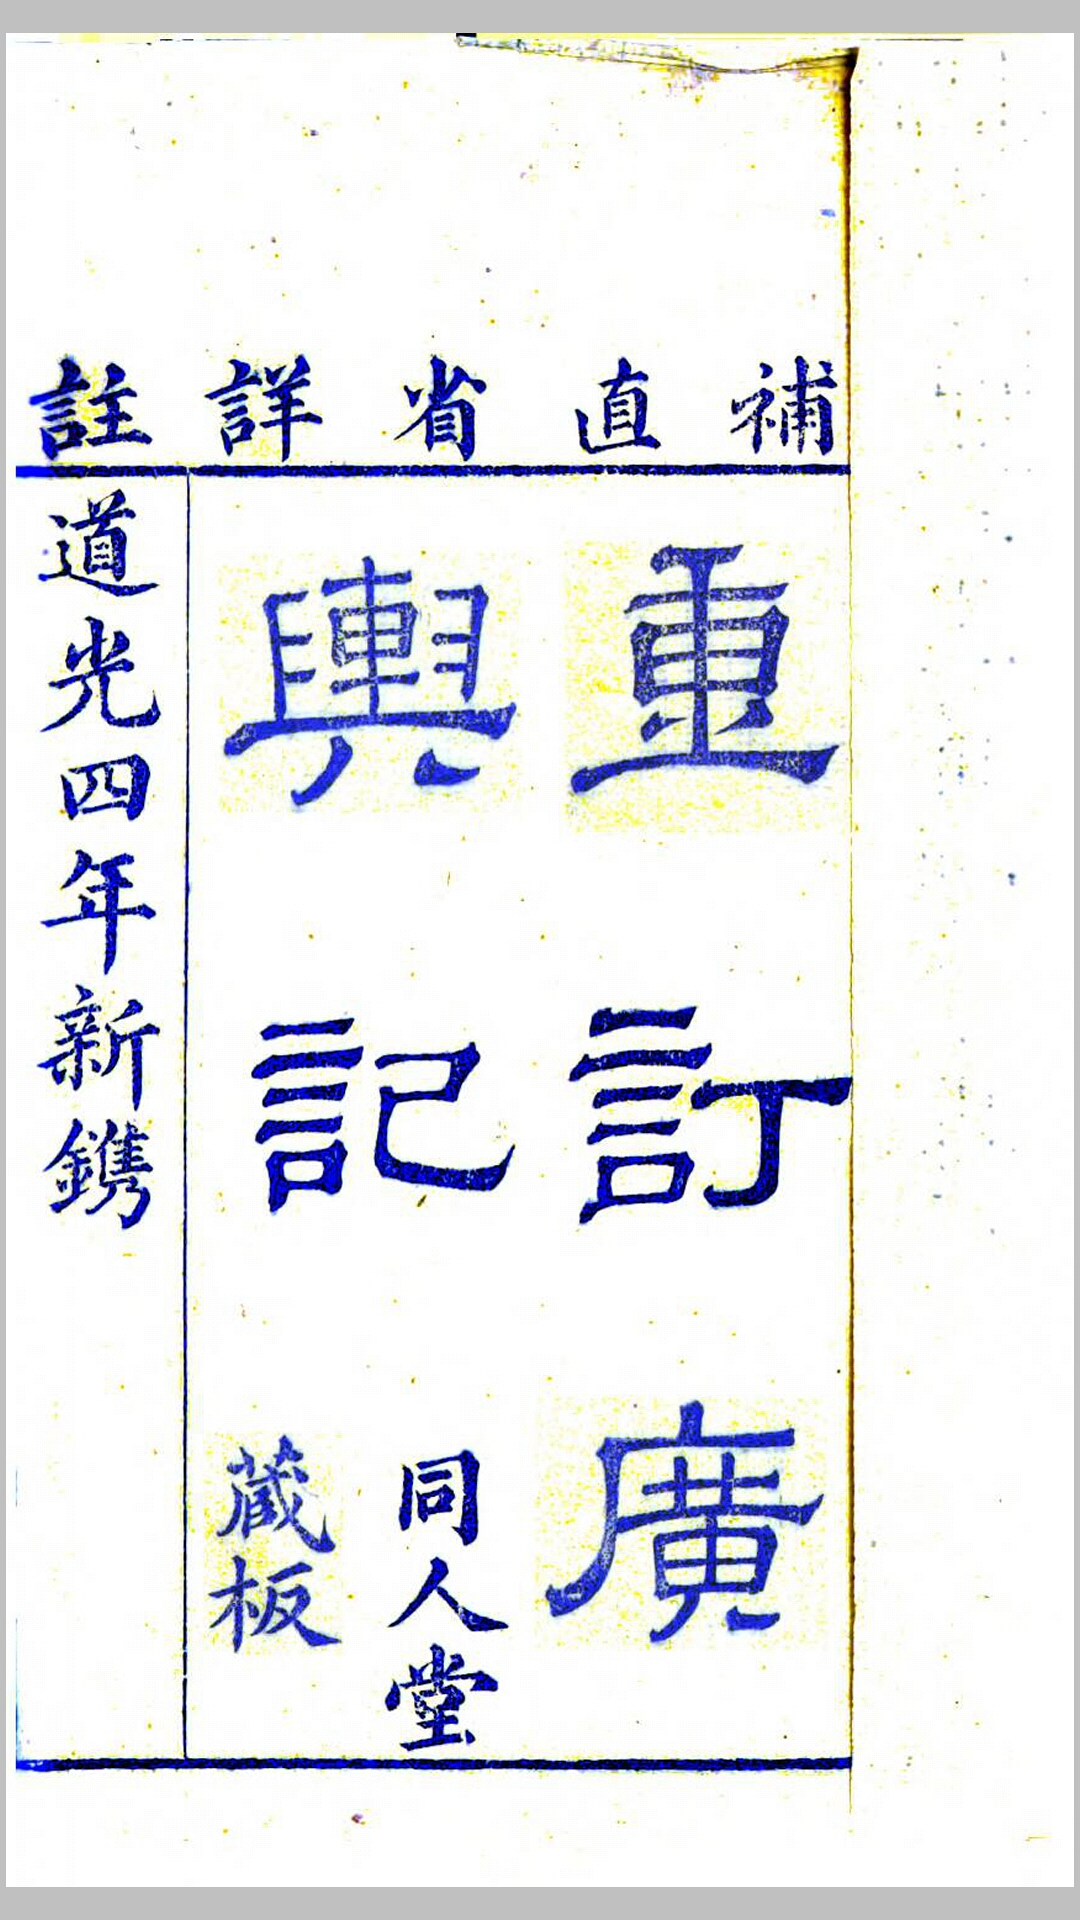 補直省詳註
重訂廣
輿記
同人堂
藏板
道光四年新鐫